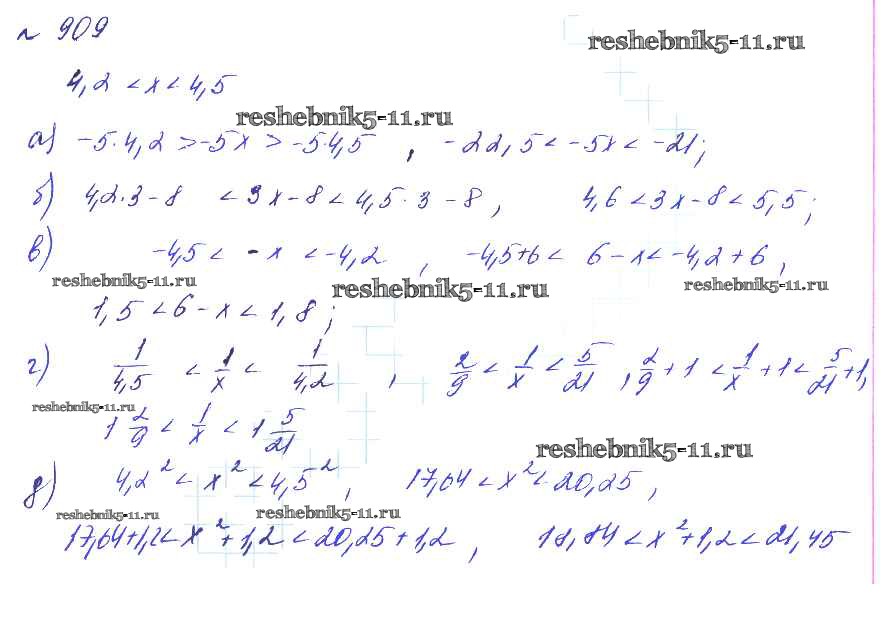 № 909
reshebnik5-11.ru
4,2 < x < 4,5
reshebnik5-11.ru
а) -5·4,2 > -5x > -5·4,5 , -22,5 < -5x < -21;
б) 4,2·3-8 < 3x-8 < 4,5·3-8 , 4,6 < 3x-8 < 5,5;
в) -4,5 < -x < -4,2 , -4,5+6 < 6-x < -4,2+6 ,
reshebnik5-11.ru reshebnik5-11.ru reshebnik5-11.ru
1,5 < 6-x < 1,8;
г) 1/4,5 < 1/x < 1/4,2 , 2/9 < 1/x < 5/21 , 2/9+1 < 1/x+1 < 5/21+1,
reshebnik5-11.ru
1 2/9 < 1/x < 1 5/21
reshebnik5-11.ru
д) 4,2² < x² < 4,5² , 17,64 < x² < 20,25 ,
reshebnik5-11.ru reshebnik5-11.ru
17,64+1,2 < x²+1,2 < 20,25+1,2 , 18,84 < x²+1,2 < 21,45